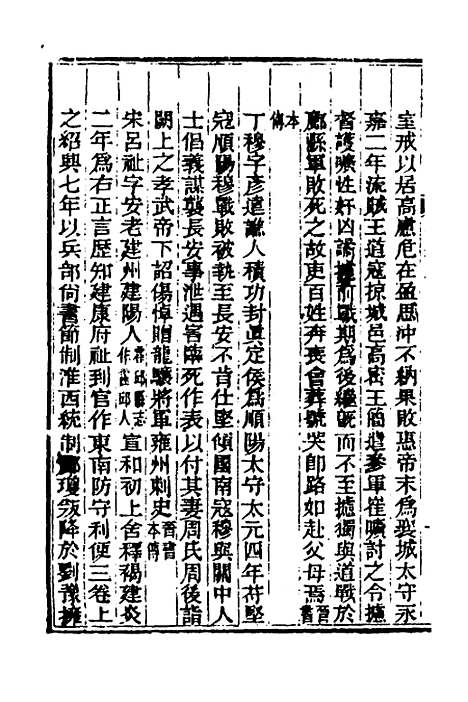 室戒以居高慮危在盈思沖不納果敗惠帝末為襄城太守永
嘉二年流賊王道寇掠城邑高密王簡遣參軍崔曠討之令擄
督護曠性奸凶請擄前戰期為後繼既而不至擄獨與道戰於
酈縣軍敗死之故吏百姓奔喪會葬號哭即路如赴父母焉晉書
本傳
丁穆字彥遠譙人積功封眞定侯為順陽太守太元四年苻堅
寇順陽穆戰敗被執至長安不肯仕堅傾國南寇穆與關中人
士倡義謀襲長安事泄遇害臨死作表以付其妻周氏周後詣
闕上之孝武帝下詔傷悼贈龍驤將軍雍州刺史晉書本傳
宋呂祉字安老建州建陽人霍邱縣志作霍邱人宣和初上舍釋褐建炎
二年為右正言歷知建康府祉到官作東南防守利便三卷上
之紹興七年以兵部尙書節制淮西統制酈瓊叛降於劉豫擁